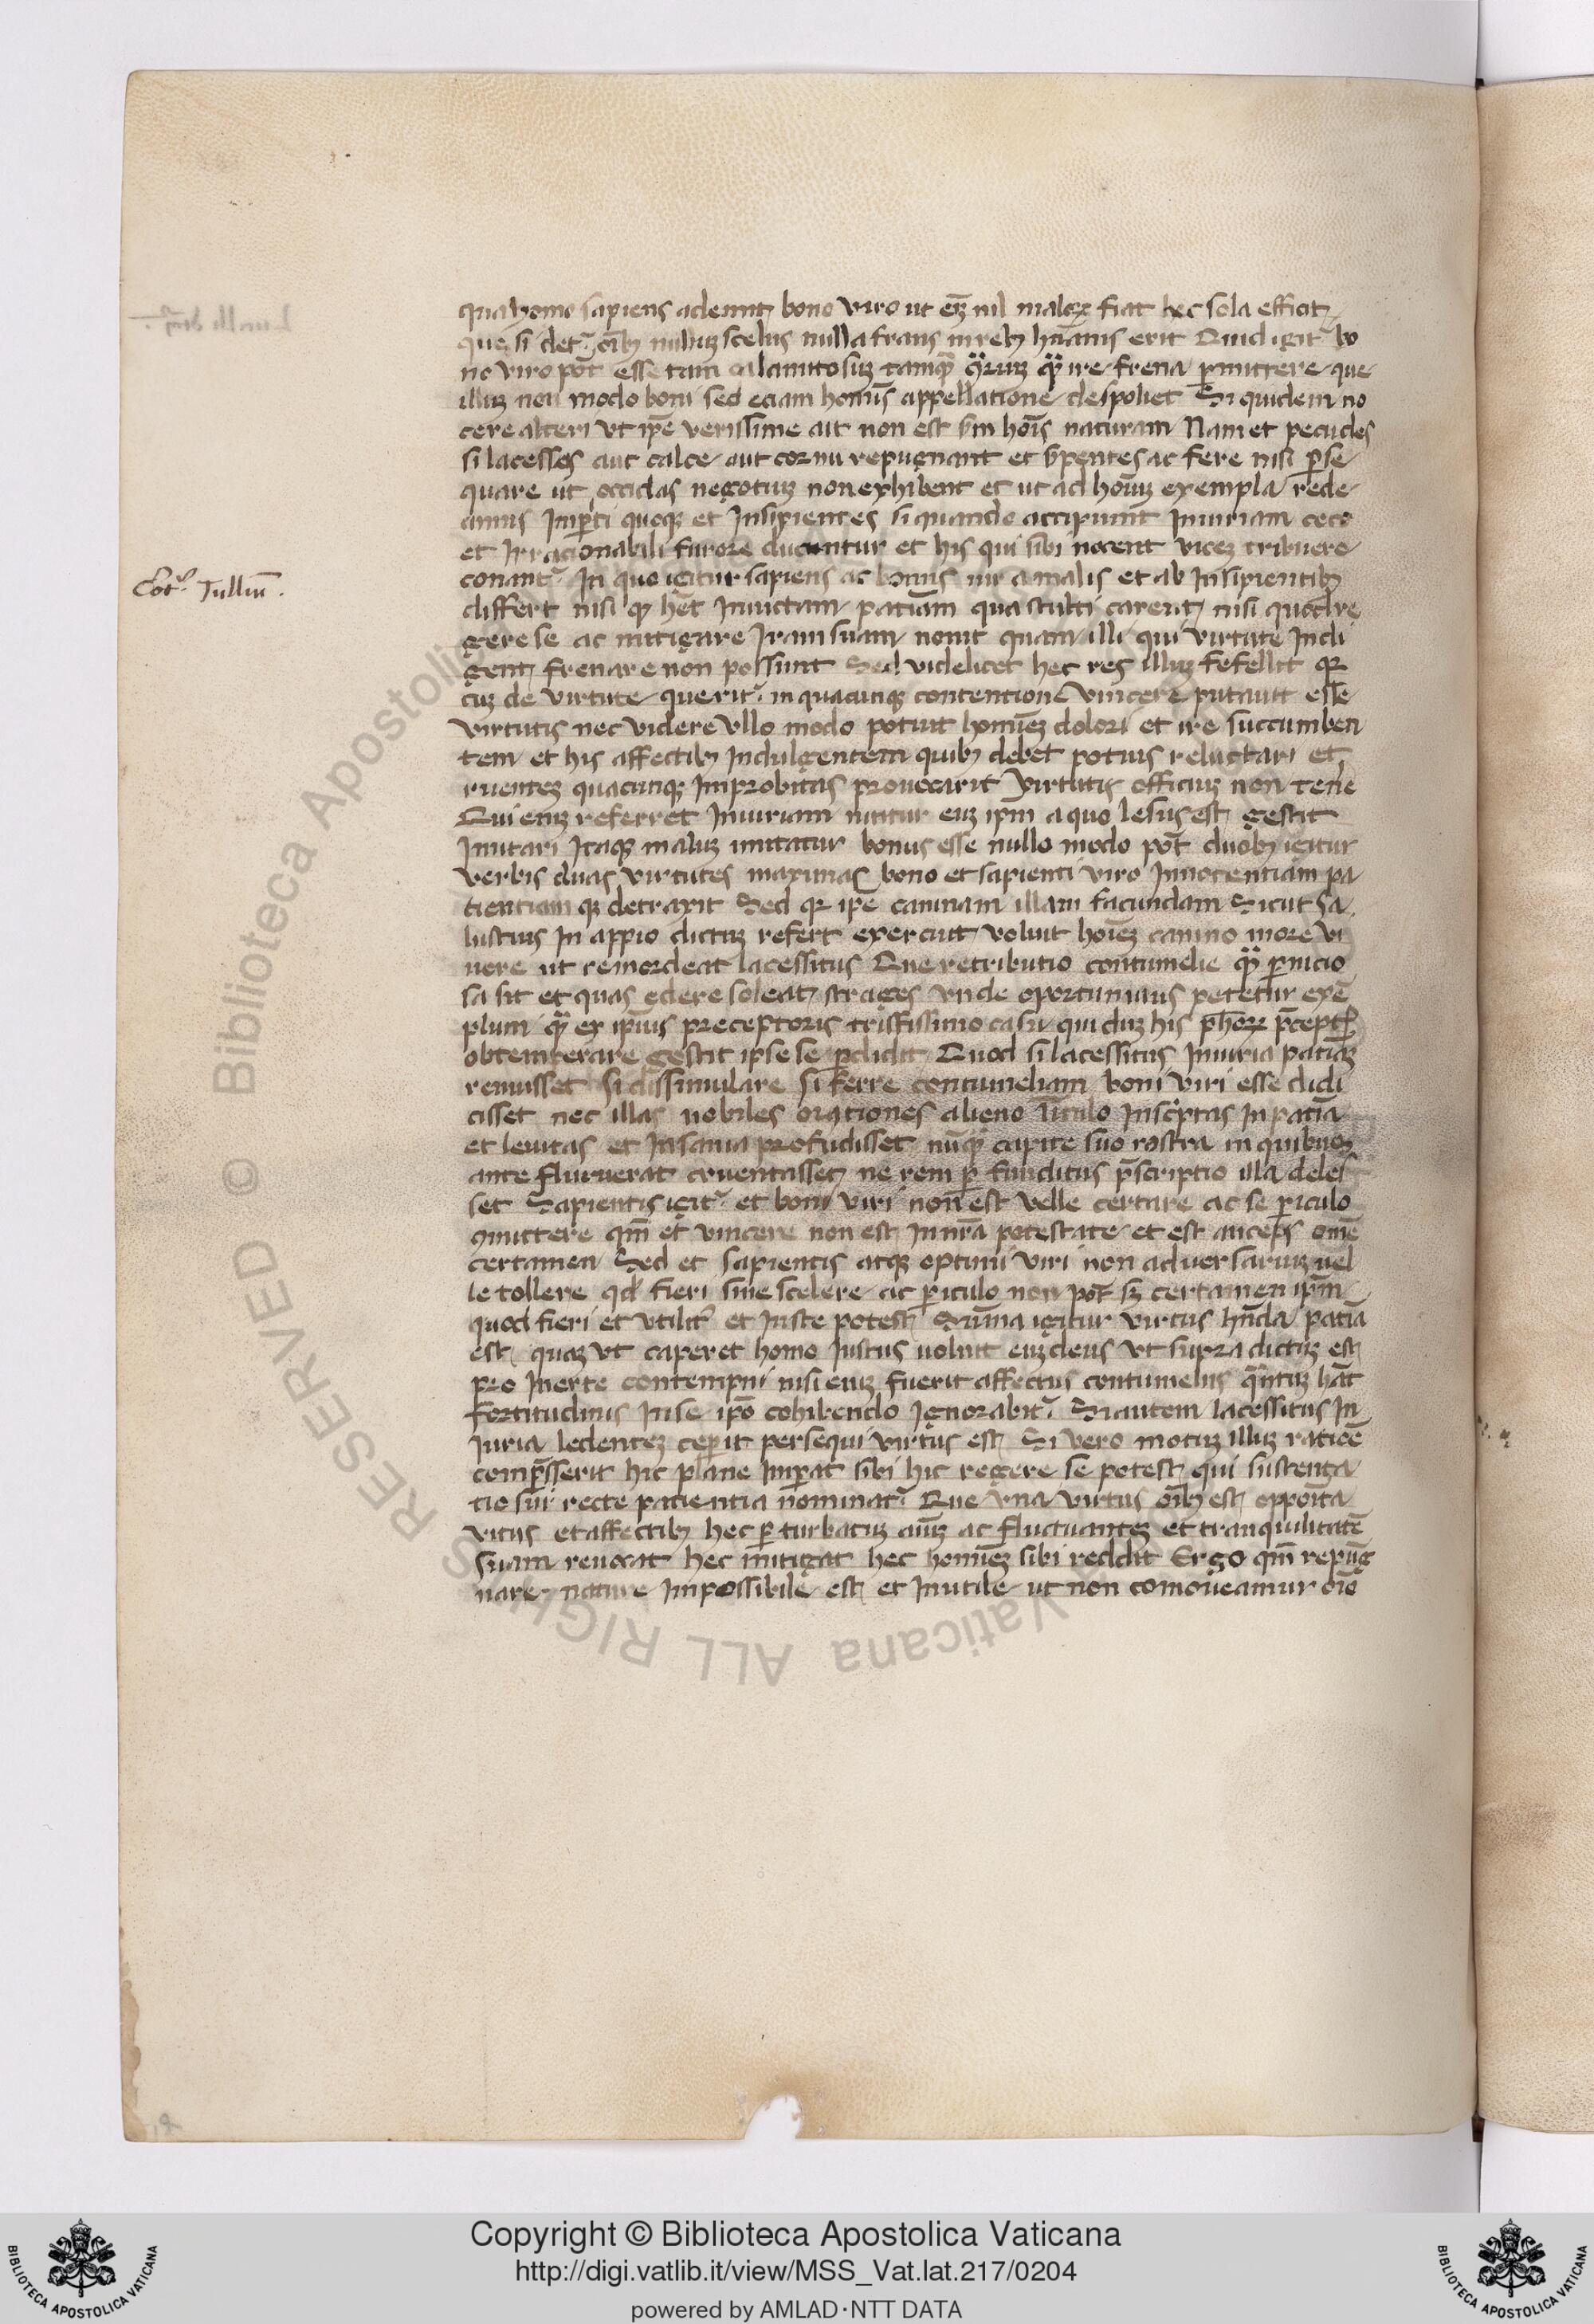 qua homo sapiens ademit bono viro ut eiꝫ nil maloꝝ fiat hec sola efficit
que si det᷑ oībꝫ nulluꝫ scelus nulla fraus in rebꝫ hūanis erit Quid igit᷑ bo
no viro pōt esse tam calamitosuꝫ tamqꝫ ꝯ̄rium quam ire frena ꝑmittere que
illuꝫ non modo boni sed eciam homīs appellatione despoliet Si quidem no
cere alteri vt ip̄e verissime ait non est sm̄ hoīs naturam Nam et pecudes
si lacesses aut calce aut cornu repugnant et serpentes ac fere nisi ꝑse
quare ut occidas negotiuꝫ non exhibent et ut ad hoīuꝫ exempla rede
amus Imꝑiti quoqꝫ et Insipientes si quando accipiunt Iniuriam ceco
et Irracionabili furore ducuntur et his qui sibi nocent viceꝫ tribuere
conant᷑ In quo igitur sapiens ac bonus uir a malis et ab Insipientibꝫ
Cōt᷑ Tulliū.
differt nisi qꝫ hēt Inuictam patiam̄ qua stulti carent nisi quod re
gere se ac mitigare Iram suam nouit quam illi qui virtute Indi
gent frenare non possunt Sed videlicet hec res illuꝫ fefellit qꝛ
cuꝫ de virtute querit᷑ in quacunqꝫ contentione vincere putauit esse
virtutis nec videre vllo modo potuit homīeꝫ dolori et ire succumben
tem et his affectibꝫ Indulgentem quibꝫ debet potius reluctari et
ruenteꝫ quacunqꝫ Improbitas prouocarit virtutis officiuꝫ non tene
Qui eniꝫ referret Iniuriam nititur euꝫ ip̄m a quo lesus est gestit
Imitari Itaqꝫ maluꝫ imitatur bonus esse nullo modo pōt duobꝫ igitur
verbis duas virtutes maximas bono et sapienti viro Innocentiam pa
tientiam qꝫ detraxit Sed qꝛ ip̄e caninam illam facundam Sicut Sa
lustius In appio dictuꝫ refert exercuit voluit hoīeꝫ canino more vi
uere ut remordeat lacessitus Que retributio contumelie quam ꝑnicio
sa sit et quas edere soleat strages vnde oportunius petetur exē
plum quam ex ipīus preceptoris tristissimo casu qui duꝫ his ph̄oꝝ p̄ceptis
obtemterare gestit ipse se ꝑdidit Quod si lacessitus Iniuria patiaꝫ
tenuisset Si dissimulare Si ferre contumeliam boni viri esse didi
cisset nec illas nobiles orationes alieno Titulo Insc̓ptas Inpatīa
et leuitas et Insania profudisset nūqꝫ capite suo rostra in quibus
ante fluxerat cruentasset ne rem ꝑ funditus p̄scriptio illa deles
set Sapientis igit᷑ et boni viri non est velle certare ac se ꝑiculo
ꝯmittere qm̄ et vincere non est In nr̄a potestate et est anceps omē
certamen Sed et sapientis atqꝫ optimi viri non aduersariuꝫ uel
le tollere qd̓ fieri sine scelere ac ꝑiculo non pōt sꝫ certamen ip̄m
quod fieri et vtilit᷑ et Iuste potest Sūma igitur virtus hn̄da patīa
est quaꝫ vt caperet homo Iustus voluit euꝫ deus vt supra dictuꝫ est
pro Inerte contempni nisi eniꝫ fuerit affectus contumelijs quantuꝫ hāt
fortitudinis In se ip̄o cohibendo Ignorabit᷑ Si autem lacessitus In
Iuria ledenteꝫ ceꝑit persequi virtus est Si vero motuꝫ illuꝫ ratiōe
comp̄sserit hic plane Imꝑat sibi hic regere se potest qui sustenta
tio sui recte patientia nominat᷑ Que vna virtus oībꝫ est oppoīta
vitijs et affectibꝫ hec ꝑturbatuꝫ aīuꝫ ac fluctuanteꝫ et tranquilitatē
Suam reuocat hec mitigat hec homīeꝫ sibi reddit Ergo qm̄ repūg
nare nature Impossibile est et Inutile ut non comōueamur oīo
Copyright © Biblioteca Apostolica Vaticana
http://digi.vatlib.it/view/MSS_Vat.lat.217/0204
powered by AMLAD·NTT DATA
© Biblioteca Apostolica Vaticana ALL RIGHTS RESERVED
BIBLIOTECA APOSTOLICA VATICANA
BIBLIOTECA APOSTOLICA VATICANA